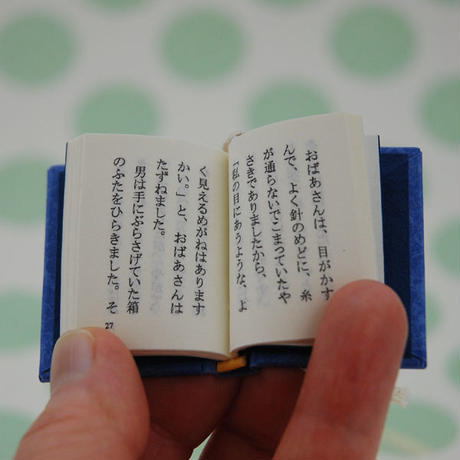 おばあさんは、目がかす
んで、よく針のめどに、糸
が通らないでこまっていたや
さきでありましたから、
「私の目にあうような、よ
く見えるめがねはあります
かい。」と、おばあさんは
たずねました。
男は手にぶらさげていた箱
のふたをひらきました。そ
27